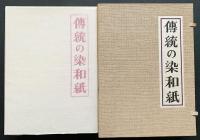 傳統の染和紙
傳統の染和紙